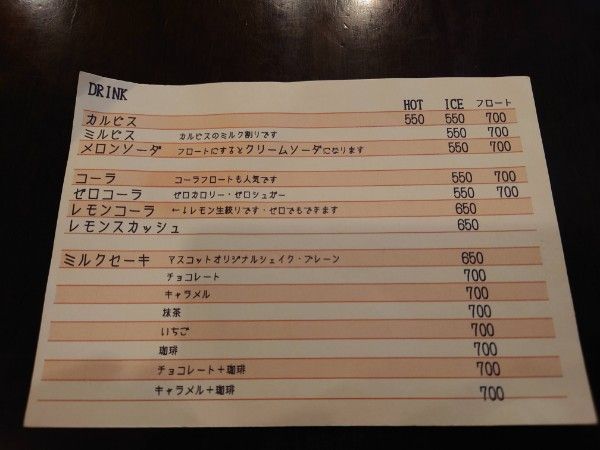 DRINK
HOT ICE フロート
カルピス 550 550 700
ミルピス カルピスのミルク割りです 550 700
メロンソーダ フロートにするとクリームソーダになります 550 700
コーラ コーラフロートも人気です 550 700
ゼロコーラ ゼロカロリー・ゼロシュガー 550 700
レモンコーラ ←↓レモン生絞りです・ゼロでもできます 650
レモンスカッシュ 650
ミルクセーキ マスコットオリジナルシェイク・プレーン 650
チョコレート 700
キャラメル 700
抹茶 700
いちご 700
珈琲 700
チョコレート+珈琲 700
キャラメル+珈琲 700